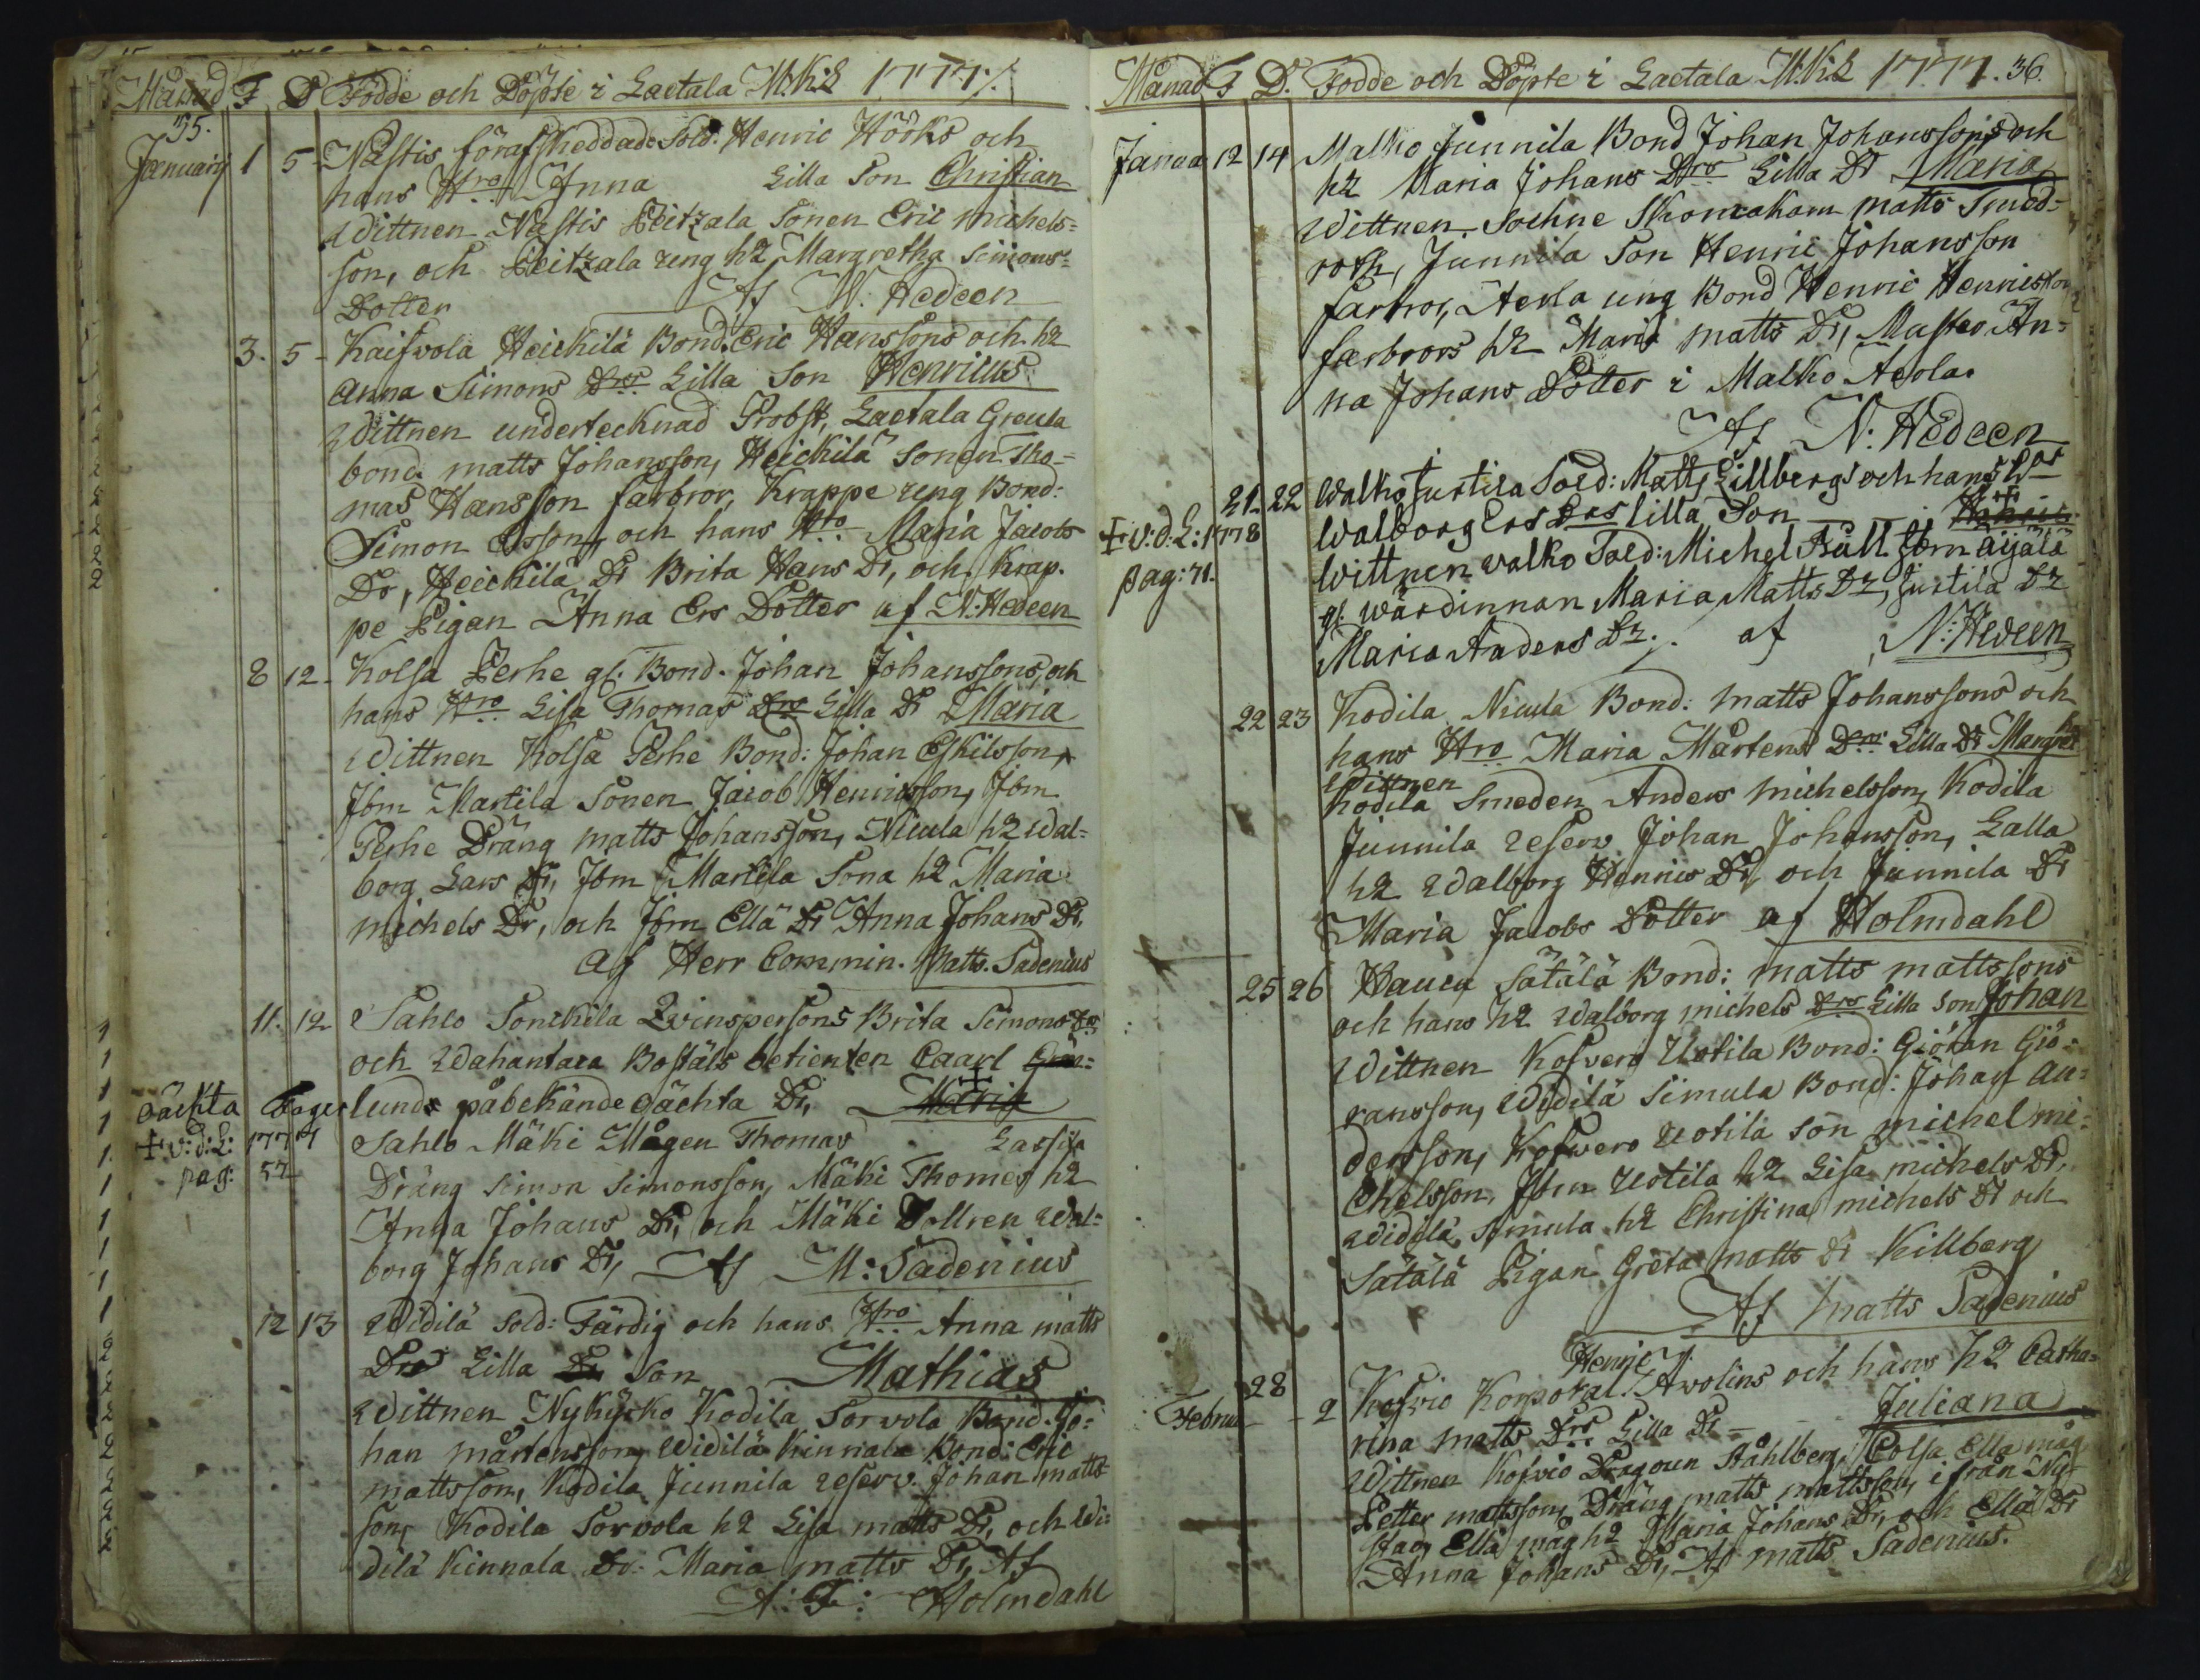 Månad F D Födde och Döpte i Laetala M:K:L 1777.
35.
January 1 5 Nästis förafskeddade Sold: Henric Hööks och
hans Hro Anna Lilla Son Christian
Wittnen Nästis Peitzala Sonen Eric Michels=
son, och Peitzala reng h2 Margretha Simons=
Dotter Af N: Hedeen
3. 5 - Kaisvola Heickilä Bond. Eric Hanssons och h2
Anna Simons Drs Lilla Son Henricus
Wittnen undertecknad Probst, Laetala Greula
bond. matts Johansson, Heickilä Sonen Tho=
mas Hansson farbror, Krappe reng Bond:
Simon Ersson, och hans Hro Maria Jacobs
Dr, Heickilä Dr Brita Hans Dr, och Krap.
pe Pigan Anna Ers Dotter af N: Hedeen
8 12 - Kolsa Perhe gl. Bond. Johan Johanssons, och
hans Hro Lisa Thomas Drs Lilla Dr Maria
Wittnen Kolsa Perhe Bond: Johan Eskilsson,
Jbm Martila Sonen Jacob Henricsson, Jbm
Perhe Dräng matts Johansson, Nicula h2 Wal=
borg Lars Dr, Jbm Martila Sona h2 Maria
michels Dr, och Jbm Ellä Dr Anna Johans Dr.
af Herr Commin. Matts. Sadenius
11. 12 Sahlo Sonckila Qvinspersons Brita Simons Drs
och Wahantaca Bostäls betienten Caarl Grön=
oächta Fagerlunds påbekände oächta Dr, Maria
+ v: d: L: 1777 Sahlo Mäki Mågen Thomas Lassila
pag: 52 Dräng Simon Simonsson, Mäki Thomas h2
Anna Johans Dr, och Mäki Dottren Wal=
borg Johans Dr, Af M: Sadenius
12 13 Widilä Sold: Färdig och hans Hro Anna matts
Drs Lilla Dr Son Mathias
Wittnen Nykyrko Kodila Sorvola Bond. Jo=
han mårtensson, Widilä Kinnala Bond: Eric
mattsson, Kodila Junnila reserv. Johan matts
son, Kodila Sorvola h2 Lisa matts Dr, och Wi=
dilä Kinnala Dr. Maria matts Dr, Af
A: F: Holmdahl
Månad F D. Födde och Döpte i Laetala M:K:L 1777. 36.
Janua 12 14 Malko Junnila Bond Johan Johanssons och
h2 Maria Johans Drs Lilla Dr Maria
Wittnen Sockne Skomakarn matts Smed=
roth, Junnila Son Henric Johansson
farbror, Aerla ung Bond Henric Henricsson
farbrors h2 Maria matts Dr, Moster An=
na Johans Dotter i Malko Aerla.
Af N: Hedeen
21. 22 Walko Jurtila Sold: Matts Lillbergs och hans Hrs
+ v: d: L: 1778 Walborg Ers Drs lilla Son
pag: 71. Wittnen Walko Sold: Michel Bäll Jbm Aijälä
gl. Wärdinnan Maria Matts Dr, Jurtila Dr
Maria Anders Dr. af N: Hedeen
22 23 Kodila Nicula Bond: matts Johanssons och
hans Hro Maria Mårtens Drs Lilla Dr Margret
Wittnen
Kodila Smeden Anders Michelsson, Kodila
Junnila reserv. Johan Johansson, Lalla
h2 Walborg Henrics Dr, och Junnila Dr
Maria Jacobs Dotter af Holmdahl
25 26 Hauru Sätälä Bond: matts mattssons
och hans h2 Walborg michels Drs Lilla Son Johan
Wittnen Kosvero Uotila Bond: Giöran Giö=
ransson, Widilä Simula Bond: Johan An=
dersson, Kosvero Uotila son michel mi=
chelsson, Jbm Uotila h2 Lisa michels Dr,
Widilä Simula h2 Christina michels Dr och
Sätälä Pigan Greta matts Dr Killberg
Af Matts Sadenius
Henric
28 Kosvio Korporal Awolins och hans h2 Catha=
Februa 2 rina matts Drs Lilla Dr - Juliana
Wittnen Kosvio Dragoun Ståhlberg, Colsa Ella måg
Petter mattsson, Dräng matts mattsson, ifrån Ny=
stad, Ella måg h2 Maria Johans Dr, och Ellä Dr
Anna Johans Dr, Af Matts Sadenius.